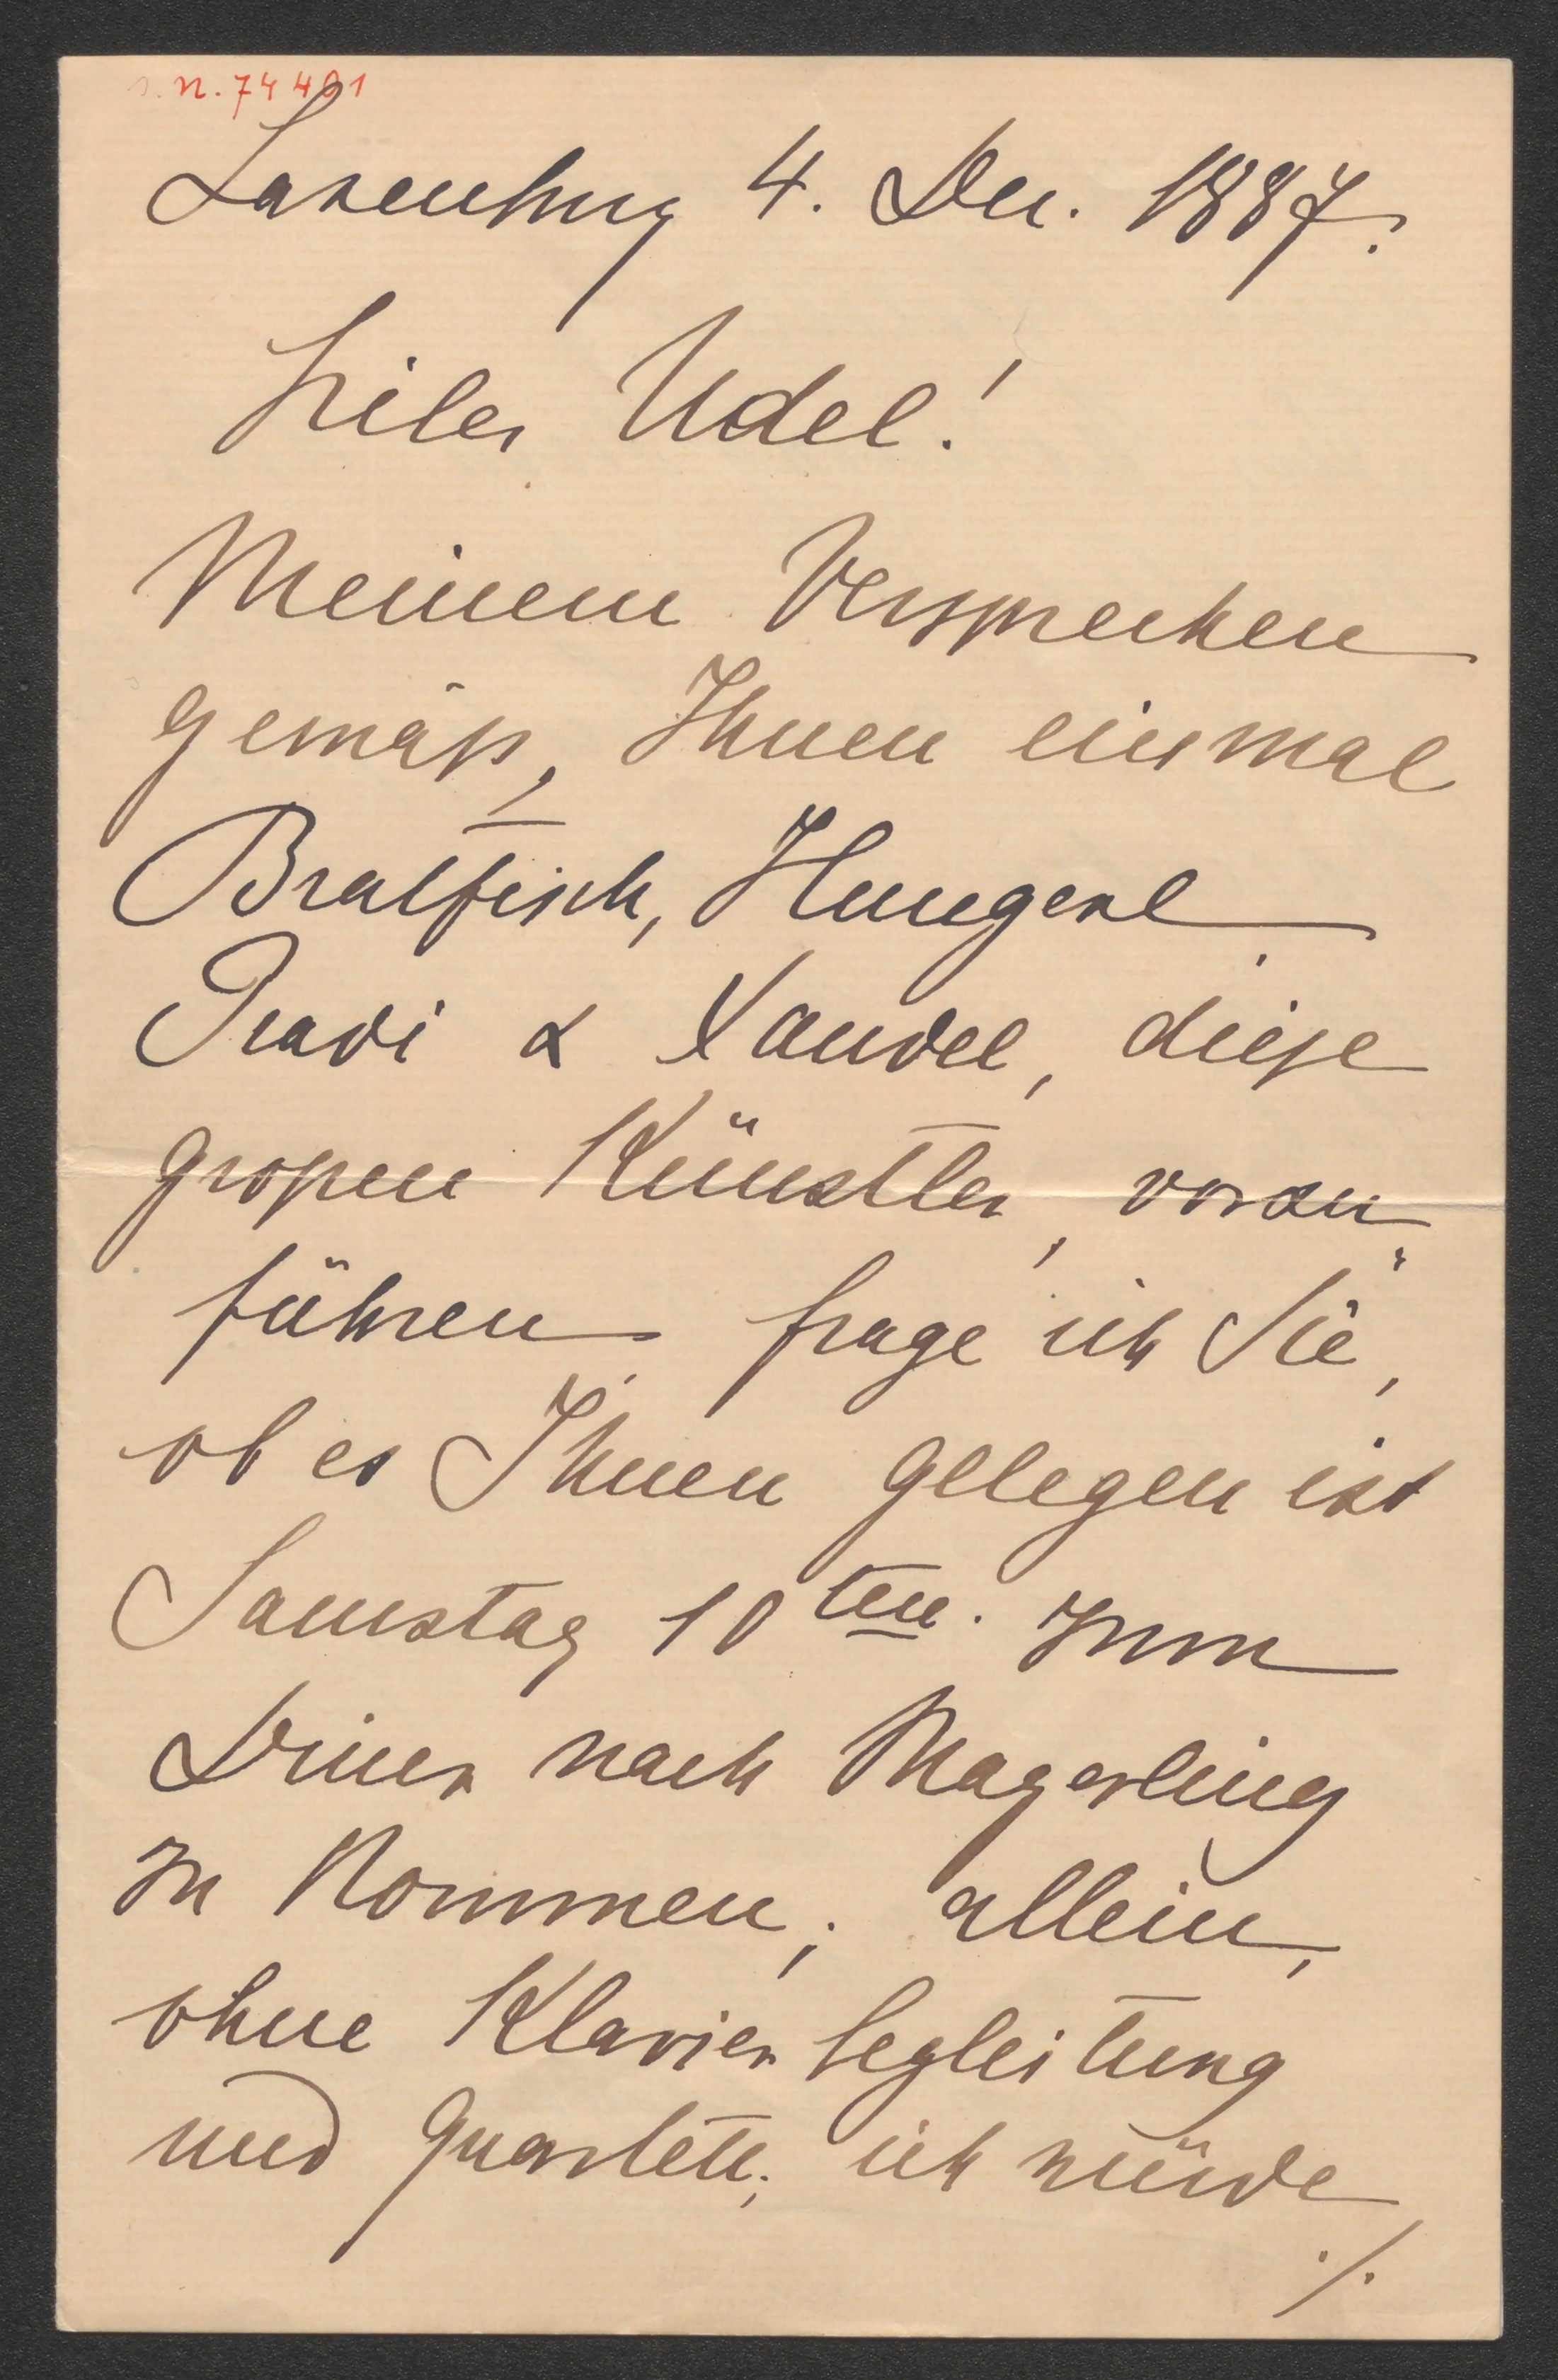 I. N. 74401
Laxenburg 4. Dec. 1887.
Lieber Udel!
Meinem Versprechen
gemäß, Ihnen einmal
Bratfisch, Hungerl
Bradi & Xandel, diese
großen Künstler, vorzu„
führen, frage ich Sie,
ob es Ihnen gelegen ist
Samstag 10ten. zum
Diner nach Mayerling
zu kommen; allein,
ohne Klavierbegleitung
und Quartett; ich würde
./.